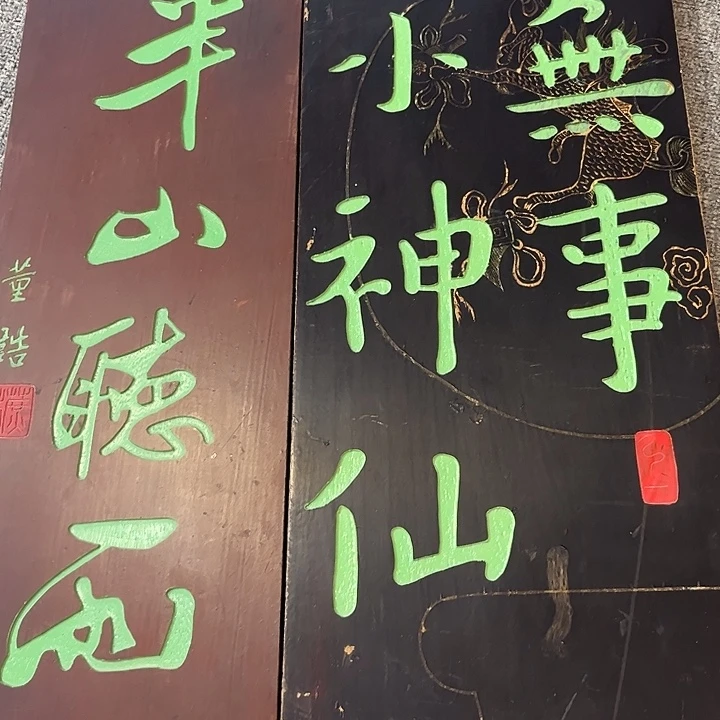 無事
小神仙
半山聽雨
董誥